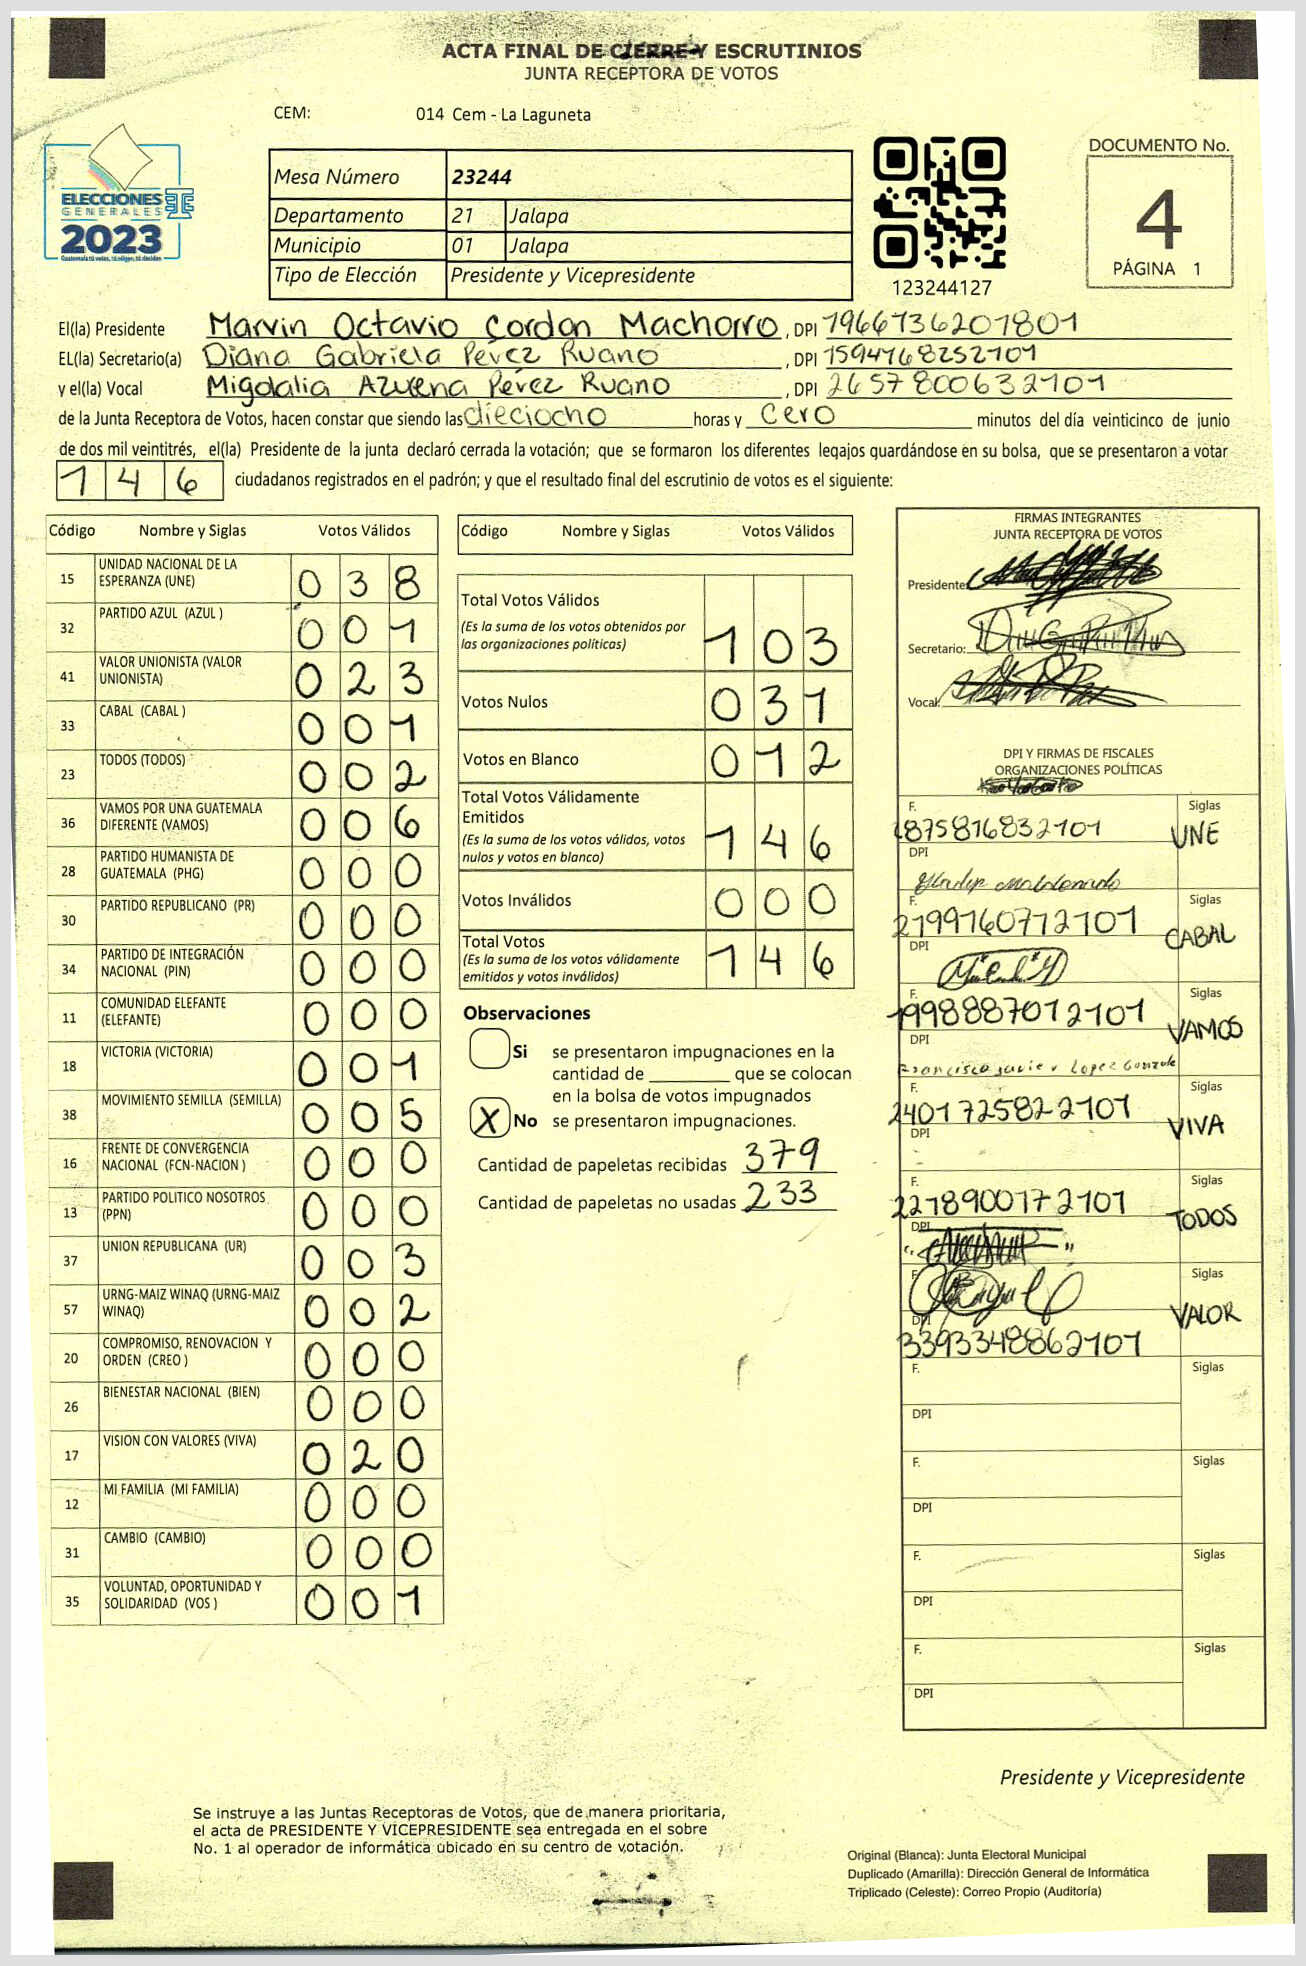 ACTA FINAL DE CIERRE Y ESCRUTINIOS
JUNTA RECEPTORA DE VOTOS
CEM: 014 Cem - La Laguneta
ELECCIONES
GENERALES
2023
Guatemala tú votas, tú eliges, tú decides
Mesa Número 23244
Departamento 21 Jalapa
Municipio 01 Jalapa
Tipo de Elección Presidente y Vicepresidente
123244127
DOCUMENTO No.
4
PÁGINA 1
El(la) Presidente Marvin Octavio Cordon Machorro, DPI 1966736201801
EL(la) Secretario(a) Diana Gabriela Pérez Ruano, DPI 1594768252101
y el(la) Vocal Migdalia Azucena Pérez Ruano, DPI 2657800632101
de la Junta Receptora de Votos, hacen constar que siendo las dieciocho horas y cero minutos del día veinticinco de junio
de dos mil veintitrés, el(la) Presidente de la junta declaró cerrada la votación; que se formaron los diferentes legajos guardándose en su bolsa, que se presentaron a votar
146 ciudadanos registrados en el padrón; y que el resultado final del escrutinio de votos es el siguiente:
Código Nombre y Siglas Votos Válidos
15 UNIDAD NACIONAL DE LA ESPERANZA (UNE) 038
32 PARTIDO AZUL (AZUL ) 001
41 VALOR UNIONISTA (VALOR UNIONISTA) 023
33 CABAL (CABAL ) 001
23 TODOS (TODOS) 002
36 VAMOS POR UNA GUATEMALA DIFERENTE (VAMOS) 006
28 PARTIDO HUMANISTA DE GUATEMALA (PHG) 000
30 PARTIDO REPUBLICANO (PR) 000
34 PARTIDO DE INTEGRACIÓN NACIONAL (PIN) 000
11 COMUNIDAD ELEFANTE (ELEFANTE) 000
18 VICTORIA (VICTORIA) 001
38 MOVIMIENTO SEMILLA (SEMILLA) 005
16 FRENTE DE CONVERGENCIA NACIONAL (FCN-NACION ) 000
13 PARTIDO POLITICO NOSOTROS (PPN) 000
37 UNION REPUBLICANA (UR) 003
57 URNG-MAIZ WINAQ (URNG-MAIZ WINAQ) 002
20 COMPROMISO, RENOVACION Y ORDEN (CREO ) 000
26 BIENESTAR NACIONAL (BIEN) 000
17 VISION CON VALORES (VIVA) 020
12 MI FAMILIA (MI FAMILIA) 000
31 CAMBIO (CAMBIO) 000
35 VOLUNTAD, OPORTUNIDAD Y SOLIDARIDAD (VOS ) 001
Código Nombre y Siglas Votos Válidos
Total Votos Válidos
(Es la suma de los votos obtenidos por las organizaciones políticas) 103
Votos Nulos 031
Votos en Blanco 012
Total Votos Válidamente Emitidos
(Es la suma de los votos válidos, votos nulos y votos en blanco) 146
Votos Inválidos 000
Total Votos
(Es la suma de los votos válidamente emitidos y votos inválidos) 146
Observaciones
Si se presentaron impugnaciones en la
cantidad de que se colocan
en la bolsa de votos impugnados
X No se presentaron impugnaciones.
Cantidad de papeletas recibidas 379
Cantidad de papeletas no usadas 233
FIRMAS INTEGRANTES
JUNTA RECEPTORA DE VOTOS
Presidente:
Secretario:
Vocal:
DPI Y FIRMAS DE FISCALES
ORGANIZACIONES POLÍTICAS
F. 1875816832101 Siglas UNE
DPI Maldonado
F. 2199160772101 Siglas CABAL
DPI
F. 1998887012101 Siglas VAMOS
DPI Francisco Javier Lopez Gonzale
F. 2401725822101 Siglas VIVA
DPI
F. 2218900172101 Siglas TODOS
DPI
F. Siglas VALOR
DPI 3393348862101
F. Siglas
DPI
F. Siglas
DPI
F. Siglas
DPI
F. Siglas
DPI
Presidente y Vicepresidente
Se instruye a las Juntas Receptoras de Votos, que de manera prioritaria,
el acta de PRESIDENTE Y VICEPRESIDENTE sea entregada en el sobre
No. 1 al operador de informática ubicado en su centro de votación.
Original (Blanca): Junta Electoral Municipal
Duplicado (Amarilla): Dirección General de Informática
Triplicado (Celeste): Correo Propio (Auditoría)